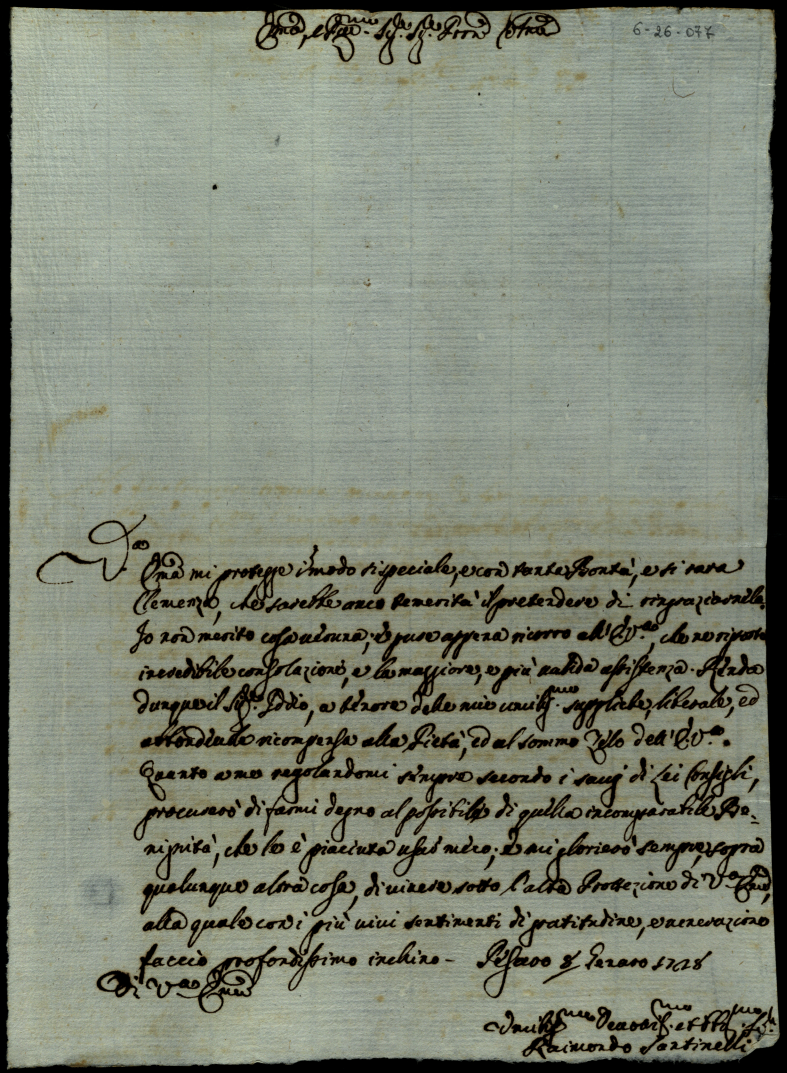 6-26-077
Em.ª, e Rev.ma Sig.r Sig.r Pron Colmo
V.ra
Em.ª mi protegge in modo si speciale, e con tanta Bontà, e si rara
Clemenza, che sarebbe anco temerità il pretendere di ringraziarnela.
Io non merito cosa alcuna; e pure appena ricorro all' E.V.ra, che ne riporto
incredibile consolazione, e la maggiore, e più valida assistenza. Renda
dunque il Sig.r Iddio, a tenore delle mie umiliss.me suppliche, liberale, ed
abbondante ricompensa alla Pietà, ed al sommo Zelo dell' E.V.ra.
Quanto a me regolandomi sempre secondo i savj di Lei Consigli,
procurerò di farmi degno al possibile di quella incomparabile Be-
nignità, che le è piaciuta usar meco; e mi glorierò sempre, sopra
qualunque altra cosa, di vivere sotto l'alta Protezione di V.ra Em.ª,
alla quale con i più vivi sentimenti di gratitudine, e venerazione
faccio profondissimo inchino - Pesaro 8 Genaro 1728
Di V.ra Em.ª
Umiliss.mo Devotis.mo et Obb.mo Ser.re
Raimondo Santinelli